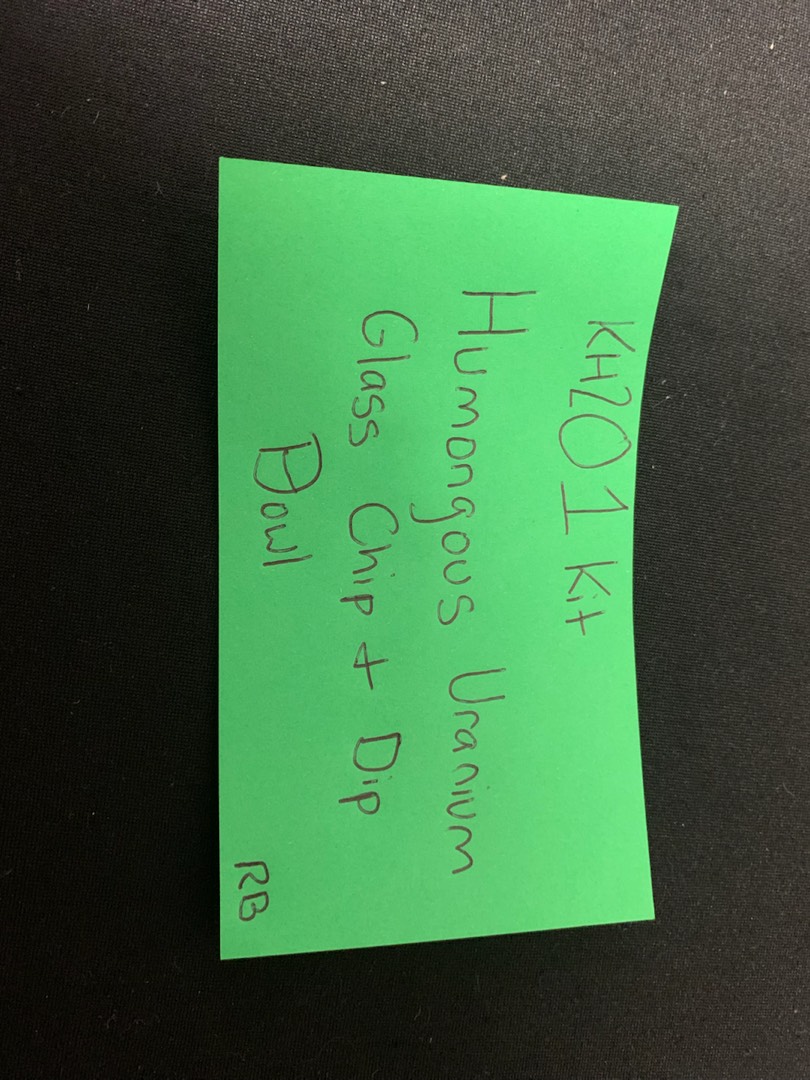 KH201 Kit
Humongous Uranium
Glass Chip + Dip
Bowl
RB